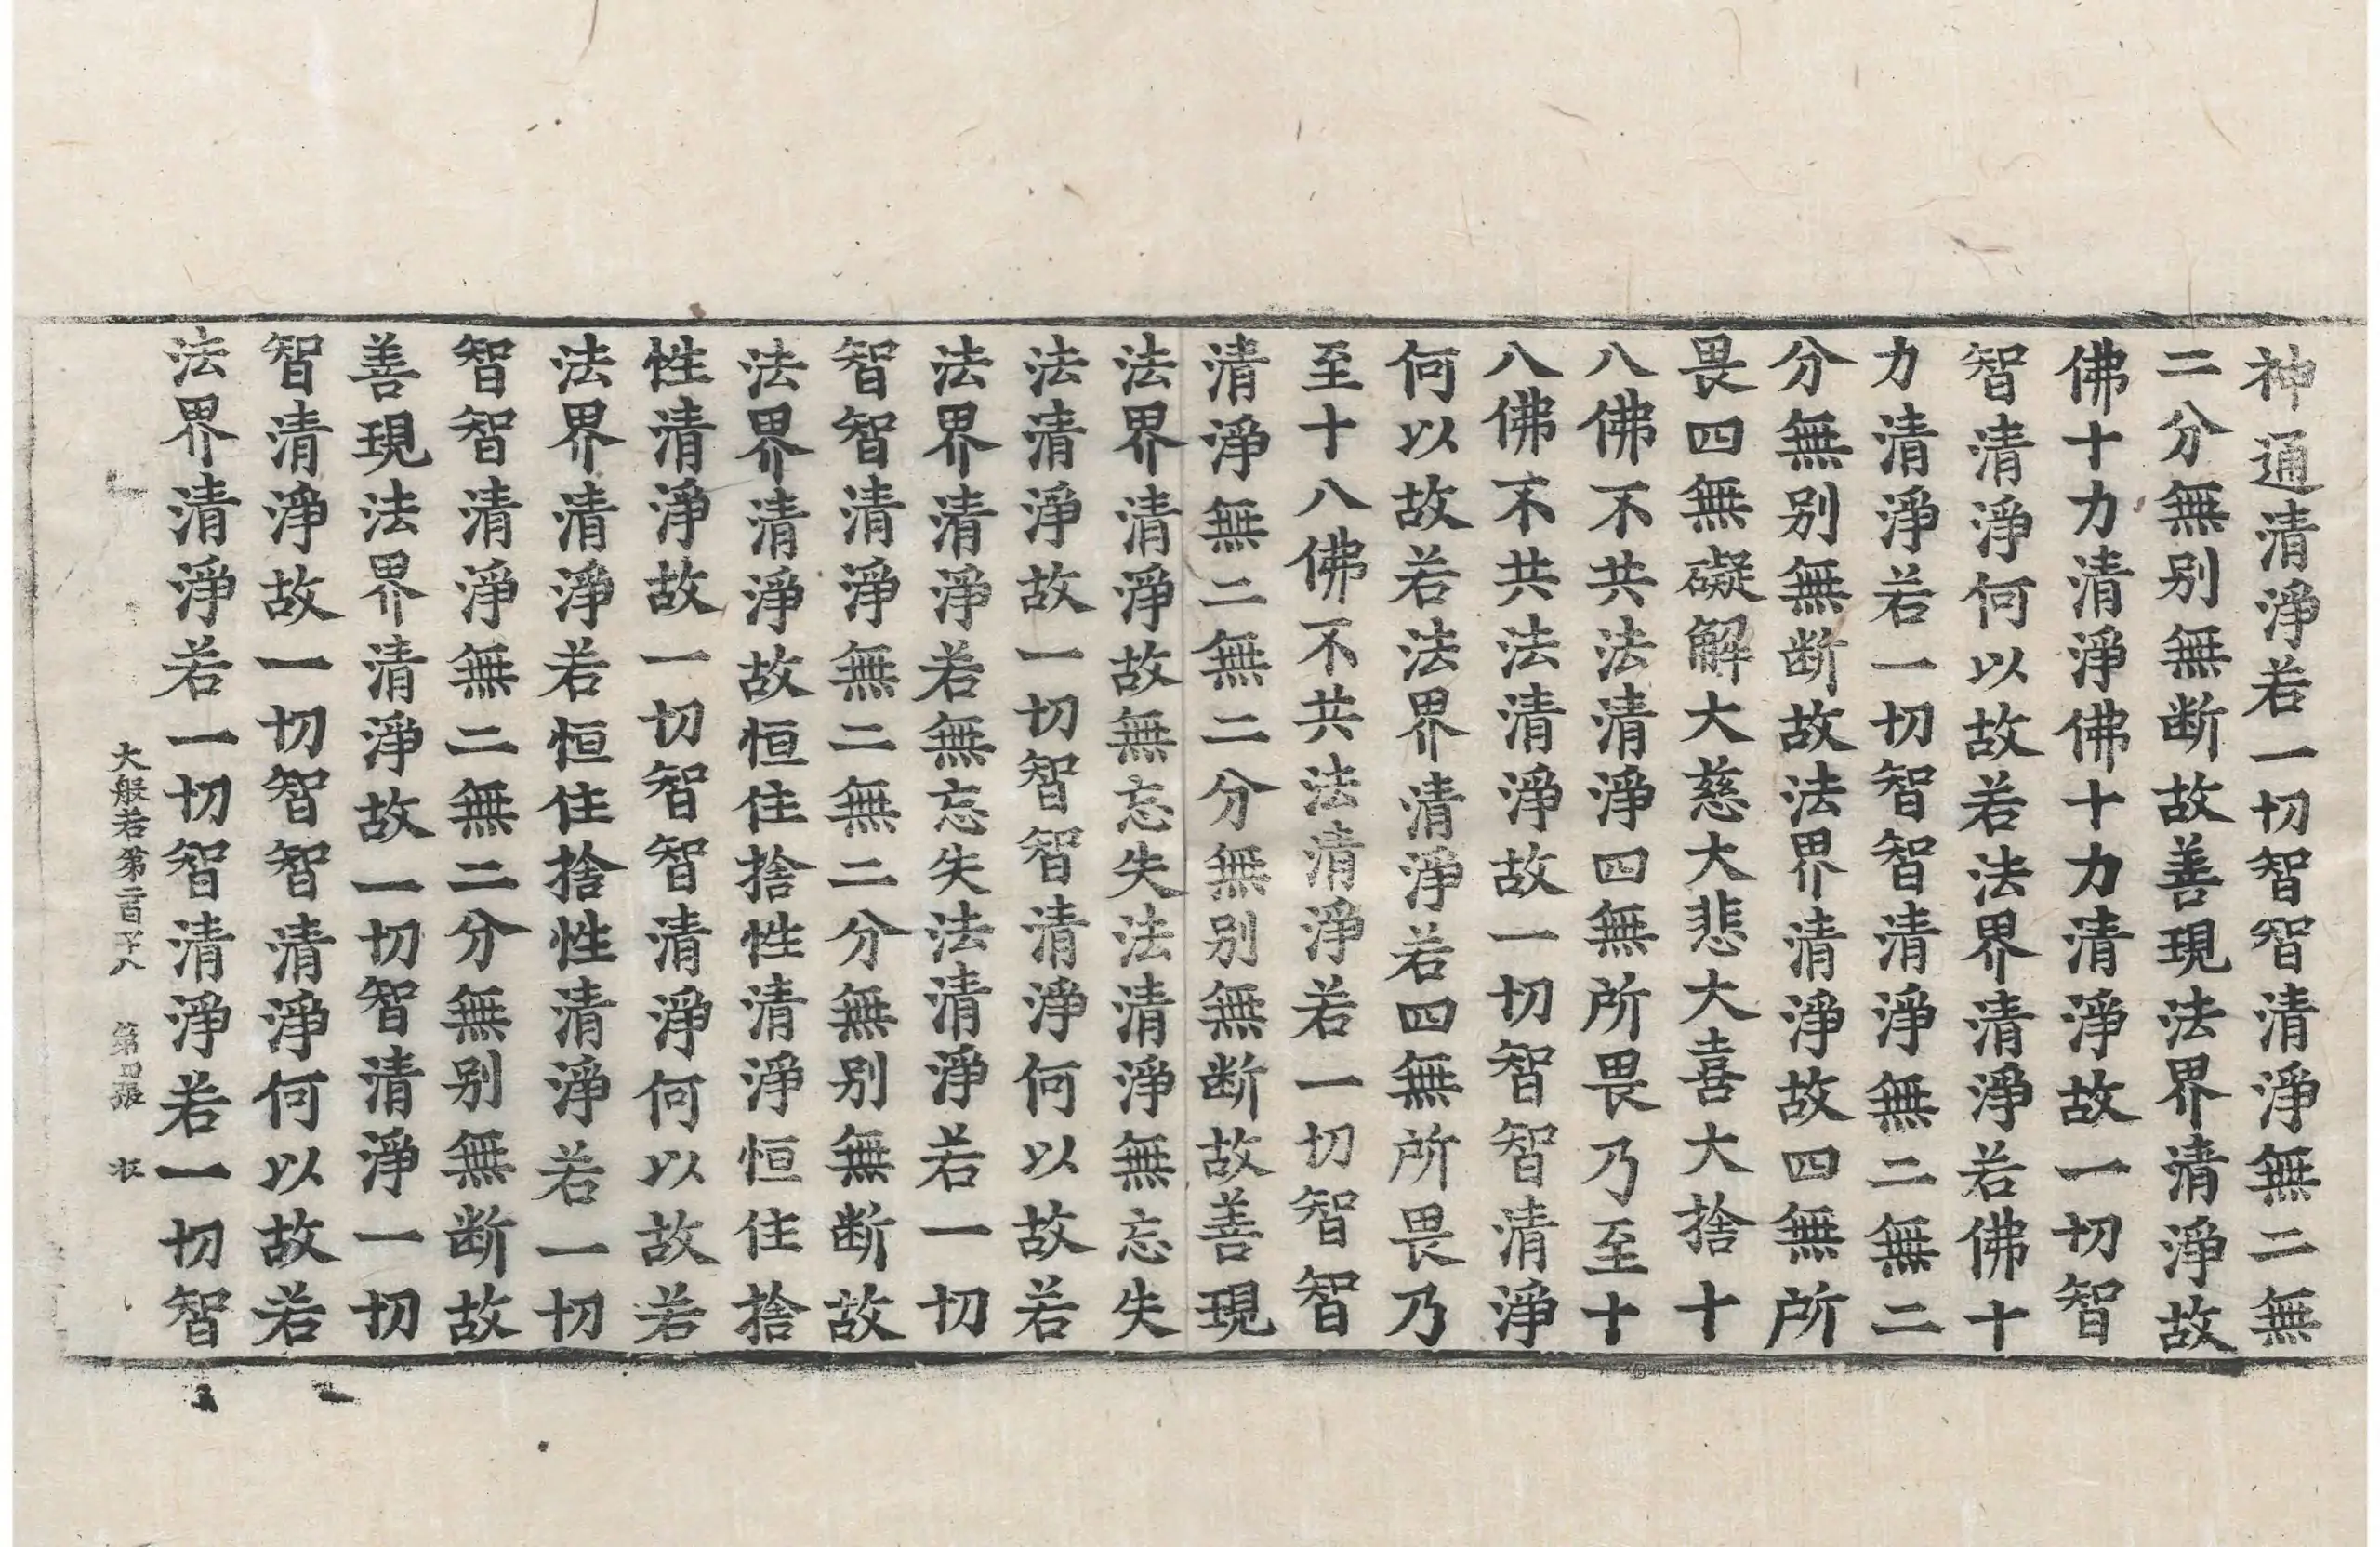 神通清淨若一切智智清淨無二無
二分無别無断故善現法界清淨故
佛十力清淨佛十力清淨故一切智
智清淨何以故若法界清淨若佛十
力清淨若一切智智清淨無二無二
分無别無断故法界清淨故四無所
畏四無礙解大慈大悲大喜大捨十
八佛不共法清淨四無所畏乃至十
八佛不共法清淨故一切智智清淨
何以故若法界清淨若四無所畏乃
至十八佛不共法清淨若一切智智
清淨無二無二分無别無断故善現
法界清淨故無忘失法清淨無忘失
法清淨故一切智智清淨何以故若
法界清淨若無忘失法清淨若一切
智智清淨無二無二分無别無断故
法界清淨故恒住捨性清淨恒住捨
性清淨故一切智智清淨何以故若
法界清淨若恒住捨性清淨若一切
智智清淨無二無二分無别無断故
善現法界清淨故一切智清淨一切
智清淨故一切智智清淨何以故若
法界清淨若一切智清淨若一切智
大般若第二百 八 第 張